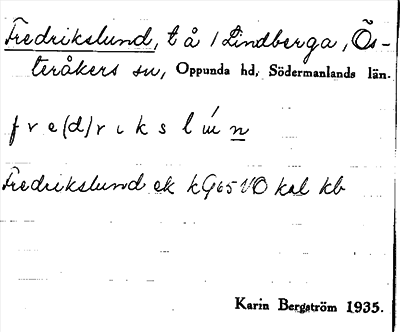 Fredrikslund, t å /Lindberga, Ös-
teråkers sn, Oppunda hd, Södermanlands län.
f r e(d)r ı k s l
Fredrikslund ek kG65VO kal kb
Karin Bergström 1935.